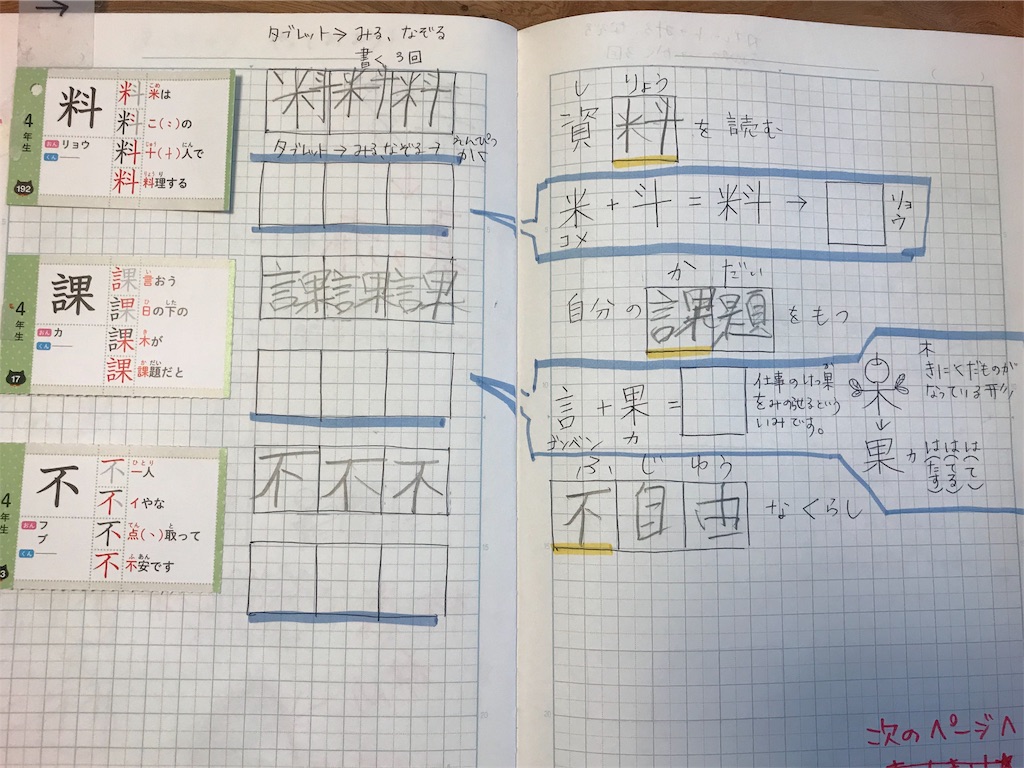 タブレット→みる、なぞる
書く3回
4年生
料
おん リョウ
くん
192
料 米は
こめ
料 こ(:)の
料 十(十)人で
じゅう にん
料 料理する
りょう り
料 料 料
タブレット→みる、なぞる→
えんぴつ
かく
4年生
課
おん カ
くん
17
課 言おう
い
課 日の下の
ひ した
課 木が
き
課 課題だと
か だい
課 課 課
4年生
不
おん フ
ブ
くん
3
不 一人
ひとり
不 イやな
不 点(、)取って
てん と
不 不安です
ふ あん
不 不 不
し りょう
資料を読む
米+斗=料→
コメ
リョウ
か だい
自分の課題をもつ
言+果=
ゴンベン
カ
仕事のけっ果
か
いみです。
木
きにくだものが
なっている形
果 カ
は(て)
は(てる)
は(たす)
ふ じ ゆう
不自由なくらし
次のページへ